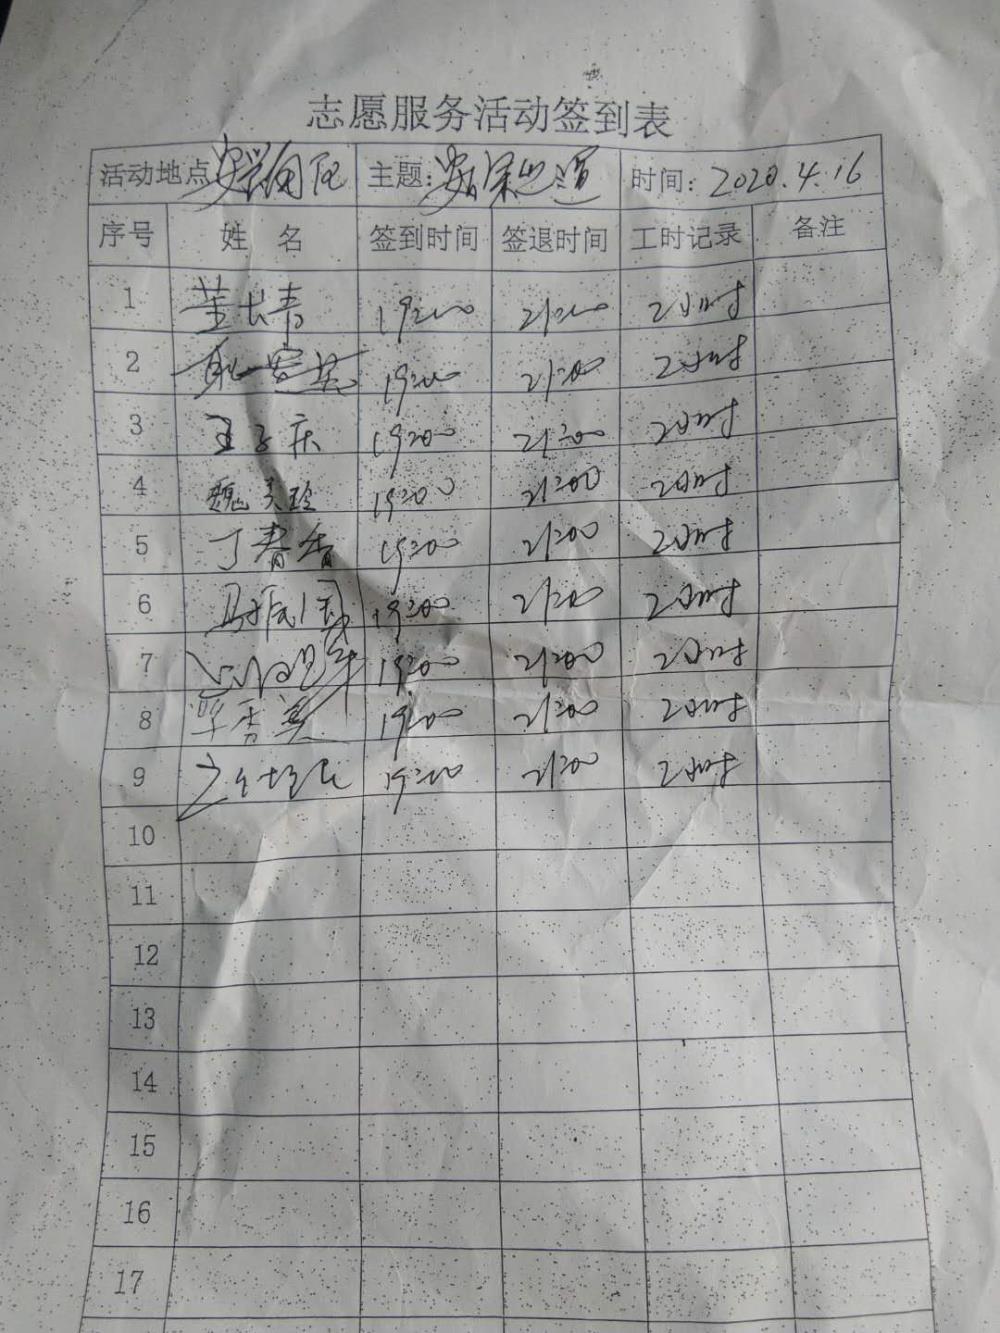 志愿服务活动签到表
活动地点 主题: 时间: 2020.4.16
序号 姓 名 签到时间 签退时间 工时记录 备注
1 董长青 19:00 21:00 2小时
2 19:00 21:00 2小时
3 王子庆 19:00 21:00 2小时
4 魏美玲 19:00 21:00 2小时
5 丁春香 19:00 21:00 2小时
6 19:00 21:00 2小时
7 19:00 21:00 2小时
8 19:00 21:00 2小时
9 19:00 21:00 2小时
10
11
12
13
14
15
16
17